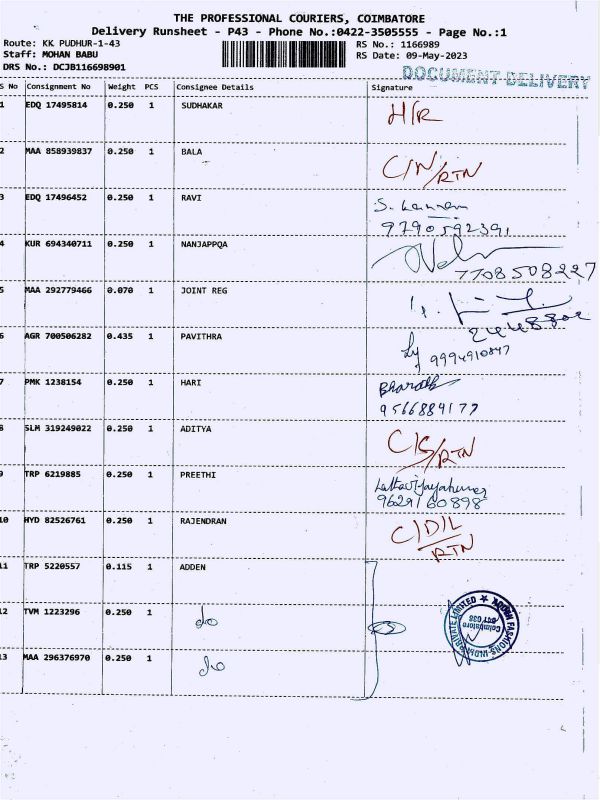 THE PROFESSIONAL COURIERS, COIMBATORE
Delivery Runsheet - P43 - Phone No.:0422-3505555 - Page No.:1
Route: KK PUDHUR-1-43 RS No.: 1166989
Staff: MOHAN BABU RS Date: 09-May-2023
DRS No.: DCJB116698901
DOCUMENT DELIVERY
S No Consignment No Weight PCS Consignee Details Signature
1 EDQ 17495814 0.250 1 SUDHAKAR H/R
2 MAA 858939837 0.250 1 BALA C/N/RTN
3 EDQ 17496452 0.250 1 RAVI S.
9790592391
4 KUR 694340711 0.250 1 NANJAPPQA
7708508227
5 MAA 292779466 0.070 1 JOINT REG
2448802
6 AGR 700506282 0.435 1 PAVITHRA 9994910847
7 PMK 1238154 0.250 1 HARI Bharath
9566889177
8 SLM 319249022 0.250 1 ADITYA C/S/RTN
9 TRP 6219885 0.250 1 PREETHI
9629160898
10 HYD 82526761 0.250 1 RAJENDRAN C/D/L
RTN
11 TRP 5220557 0.115 1 ADDEN
12 TVM 1223296 0.250 1 do
13 MAA 296376970 0.250 1 do
ADDEN FASHIONS INDIA PRIVATE LIMITED
Coimbatore
641 038